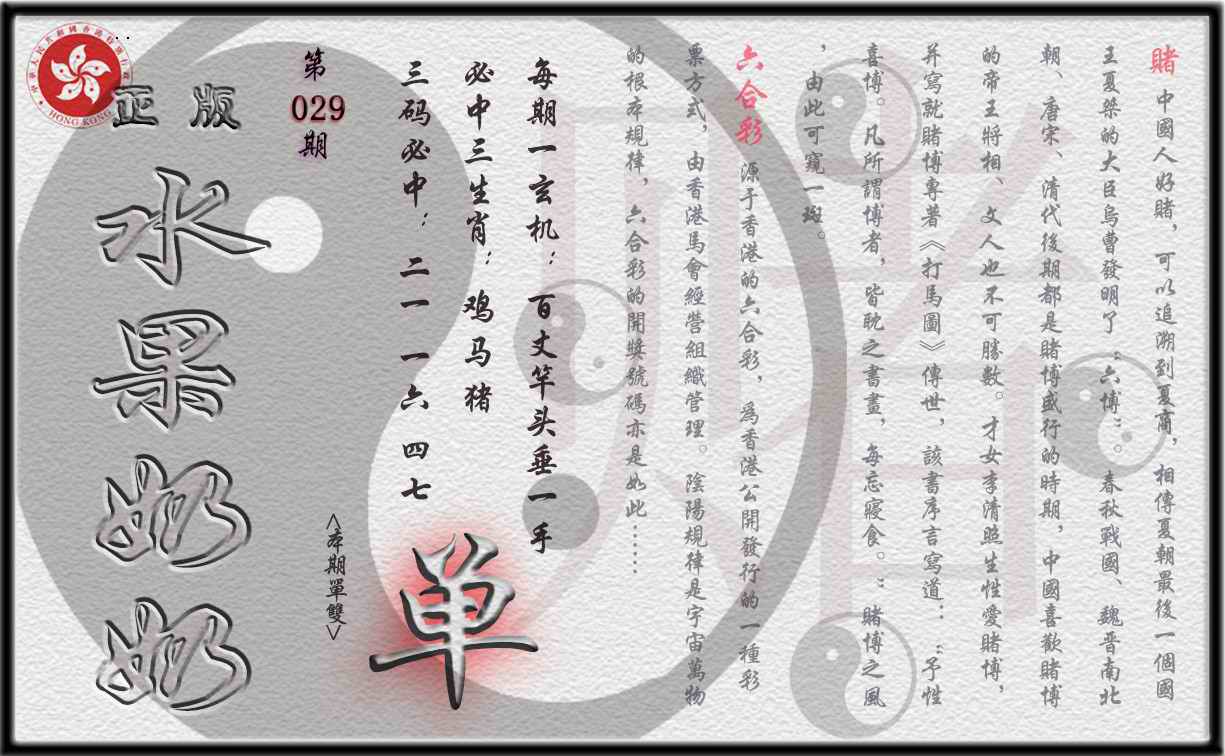 賭 中國人好賭，可以追溯到夏商，相傳夏朝最後一個國
王夏桀的大臣烏曹發明了“六博”。春秋戰國、魏晋南北
朝、唐宋、清代後期都是賭博盛行的時期，中國喜歡賭博
的帝王將相、文人也不可勝數。才女李清照生性愛賭博，
并寫就賭博專著《打馬圖》傳世，該書序言寫道：“予性
喜博。凡所謂博者，皆耽之書畫，每忘寢食。”賭博之風
，由此可窺一斑。
六合彩 源于香港的六合彩，爲香港公開發行的一種彩
票方式，由香港馬會經營組織管理。陰陽規律是宇宙萬物
的根本規律，六合彩的開獎號碼亦是如此……
每期一玄机：百丈竿头垂一手
必中三生肖：鸡马猪
三码必中：二一 一六 四七
单
<本期單雙>
第
029
期
正版
水果奶奶
中華人民共和國香港特別行政區
HONG KONG